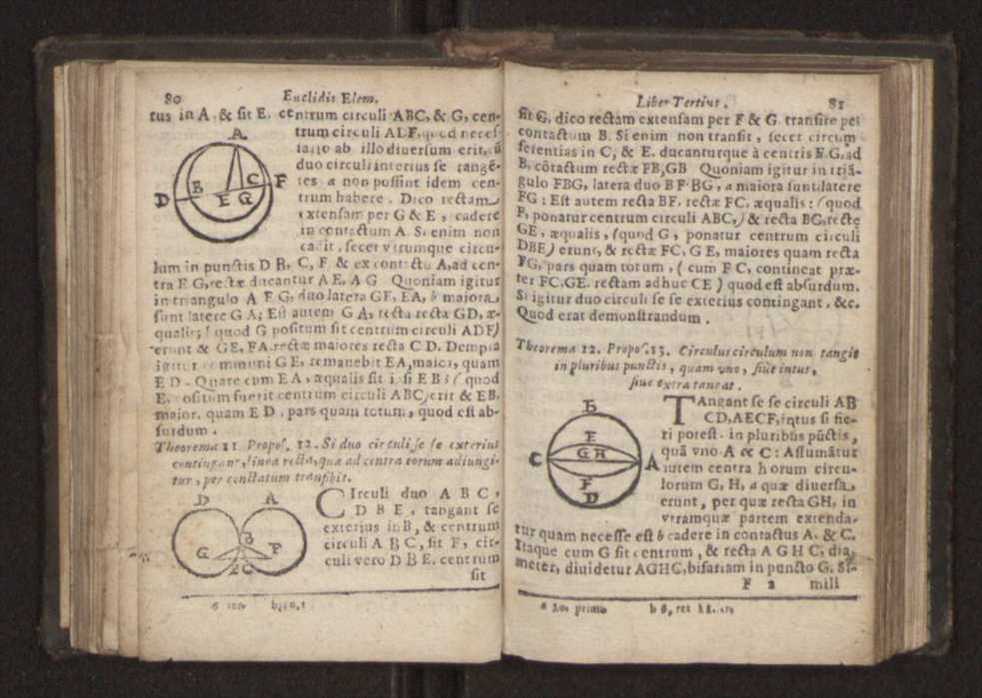 80 Euclidis Elem.
tus in A. & sit E. centrum circuli ABC, & G, cen-
trum circuli ADF, quod neces-
ab illo diuersum erit,
duo circuli interius se tangē-
tes a non possint idem cen-
trum habere. Dico rectam
extensam per G & E, cadere
in contactum A. Si enim non
cadit, secet vtrumque circu-
lum in punctis D B, C, F & ex contactu A, ad cen-
tra E G, rectæ ducantur A E, A G Quoniam igitur
in triangulo A E G, duo latera GE, EA, b maiora
sunt latere G A; Est autem G A, recta recta GD, æ-
qualis; (quod G positum sit centrum circuli ADF)
erunt & GE, EA rectæ maiores recta C D. Dempta
igitur communi G E, remanebit EA, maior, quam
E D. Quare cum EA, æqualis sit ipsi EB; (quod
E, positum fuerit centrum circuli ABC) erit & EB,
maior, quam E D, pars quam totum, quod est ab-
surdum.
Theorema 11 Propos. 12. Si duo circuli se se exterius
contingant, linea recta, quæ ad centra eorum adiungi-
tur, per contactum transibit.
CIrculi duo A B C,
D B E, tangant se
exterius in B, & centrum
circuli A B C, sit F, cir-
culi vero D B E, centrum
sit
A
B C F
D E G
D A
B
G F
E C
Liber Tertius. 81
sit G, dico rectam extensam per F & G transire per
contactum B. Si enim non transit, secet circum
ferentias in C, & E. ducanturque à centris F. G, ad
B, cōtactum rectæ FB, GB Quoniam igitur in triā-
gulo FBG, latera duo B F BG, a maiora sunt latere
FG: Est autem recta BF, rectæ FC, æqualis: (quod
F, ponatur centrum circuli ABC,) & recta BG, rectę
GE, æqualis, (quod G, ponatur centrum circuli
DBE) erunt, & rectæ FC, G E, maiores quam recta
FG, pars quam totum, (cum F C, contineat præ-
ter FC, GE. rectam adhuc CE) quod est absurdum.
Si igitur duo circuli se se exterius contingant, &c.
Quod erat demonstrandum.
Theorema 12. Propos. 13. Circulus circulum non tangit
in pluribus punctis, quam vno, siue intus,
siue extra tangat.
TAngant se se circuli AB
CD, AECF, intus si fie-
ri potest. in pluribus pūctis,
quā vno A & C: Assumātur
autem centra horum circu-
lorum G, H, a quæ diuersa
erunt, per quæ recta GH, in
vtramquæ partem extenda-
tur quam necesse est b cadere in contactus A. & C.
Itaque cum G sit centrum, & recta A G H C, dia-
meter, diuidetur AGHC, bifariam in puncto G. Si-
F 2 mili
B
E
C G H A
F
D